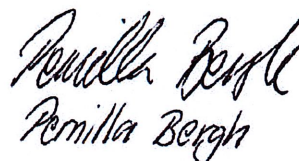 Pernilla Bergh
Pernilla Bergh